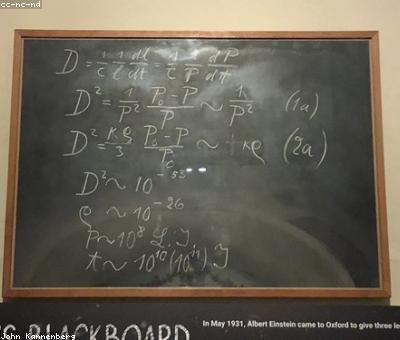 cc-nc-nd
D = 1/c 1/l dl/dt = 1/c 1/P dP/dt
D² = 1/P² P₀-P/P ~ 1/P² (1a)
D² = κρ/3 P₀-P/P₀ ~ κρ (2a)
D² ~ 10⁻⁵³
ρ ~ 10⁻²⁶
P ~ 10⁸ L.J.
t ~ 10¹⁰(10¹¹) J
BLACKBOARD
In May 1931, Albert Einstein came to Oxford to give three le
John Kannenberg